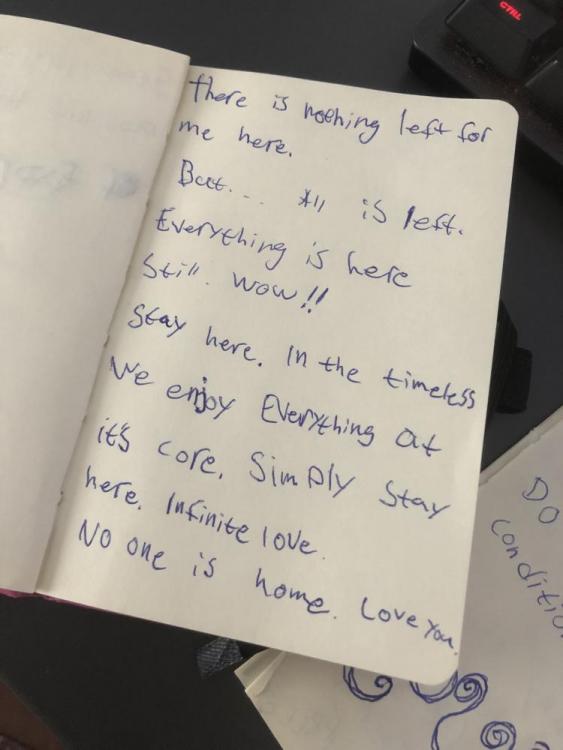 there is nothing left for
me here.
But... All is left.
Everything is here
Still. Wow!!
Stay here. In the timeless
We enjoy Everything at
it's core. Simply Stay
here. Infinite love.
No one is home. Love you.
CTRL
DO
conditio